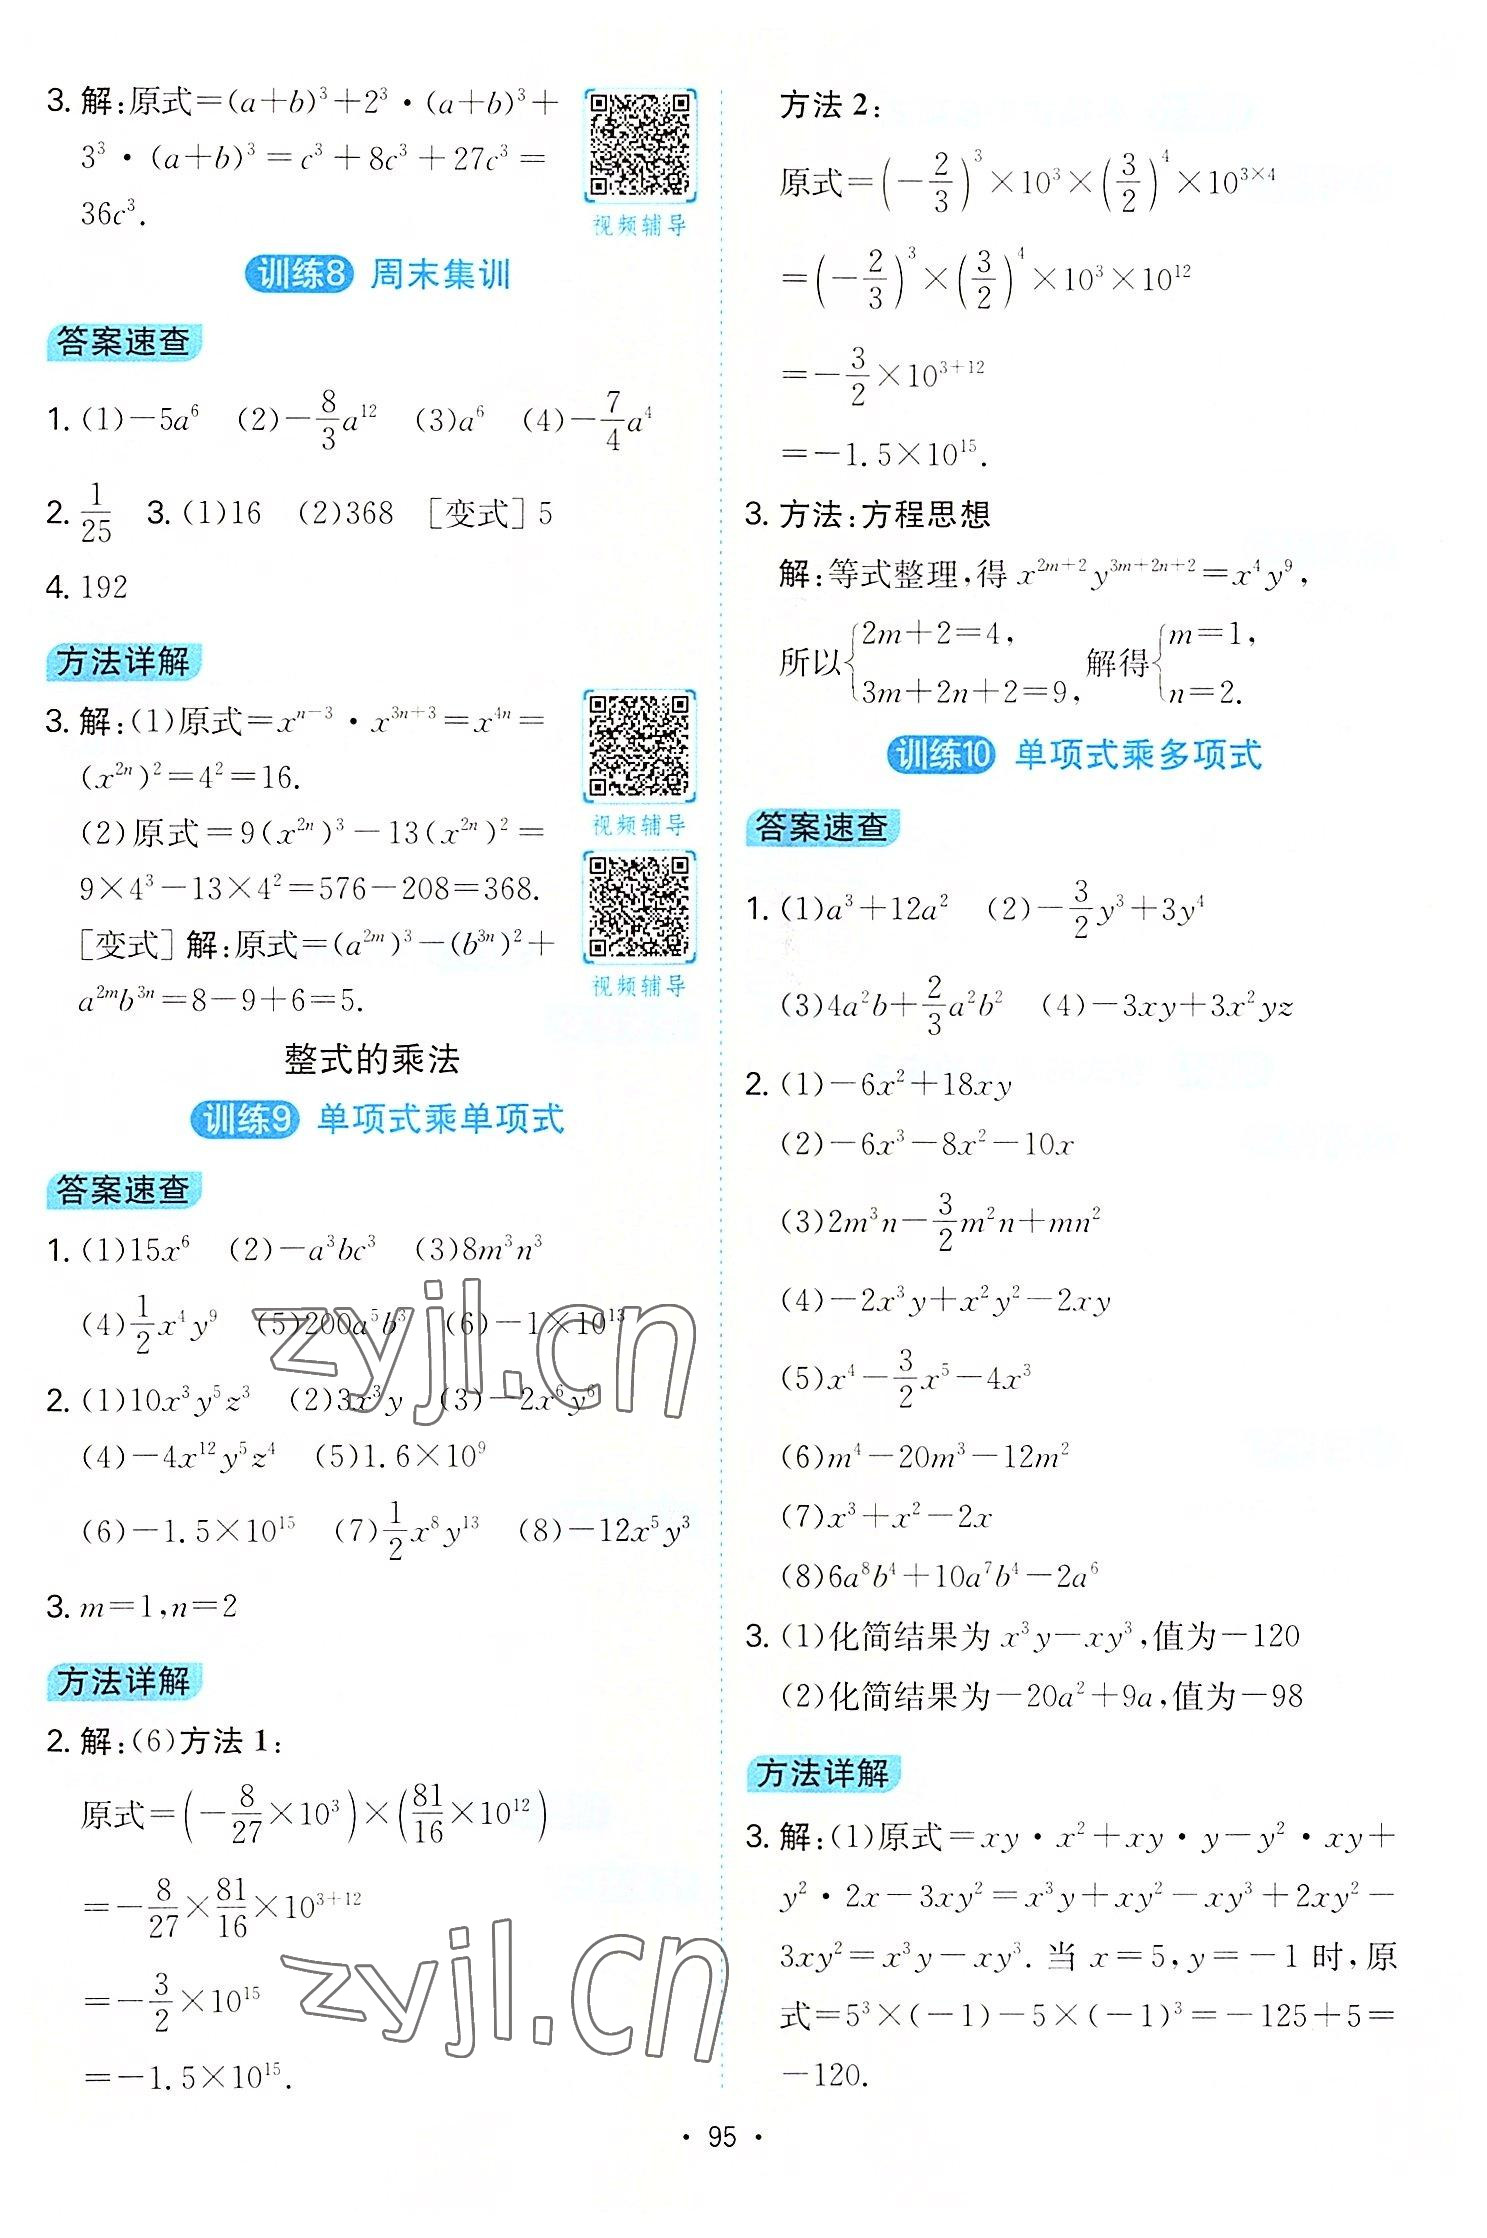 3. 解:原式=(a+b)³+2³·(a+b)³+
3³·(a+b)³=c³+8c³+27c³=
36c³.
视频辅导
训练8 周末集训
答案速查
1. (1)-5a⁶ (2)-8/3a¹² (3)a⁶ (4)-7/4a⁴
2. 1/25 3. (1)16 (2)368 [变式]5
4. 192
方法详解
3. 解:(1)原式=xⁿ⁻³·x³ⁿ⁺³=x⁴ⁿ=
(x²ⁿ)²=4²=16.
视频辅导
(2)原式=9(x²ⁿ)³-13(x²ⁿ)²=
9×4³-13×4²=576-208=368.
[变式]解:原式=(a²ᵐ)³-(b³ⁿ)²+
a²ᵐb³ⁿ=8-9+6=5.
视频辅导
整式的乘法
训练9 单项式乘单项式
答案速查
1. (1)15x⁶ (2)-a³bc³ (3)8m³n³
(4)1/2x⁴y⁹ (5)200a⁵b³ (6)-1×10¹³
2. (1)10x³y⁵z³ (2)3x³y (3)-2x⁶y⁶
(4)-4x¹²y⁵z⁴ (5)1.6×10⁹
(6)-1.5×10¹⁵ (7)1/2x⁸y¹³ (8)-12x⁵y³
3. m=1,n=2
方法详解
2. 解:(6)方法1:
原式=(-8/27×10³)×(81/16×10¹²)
=-8/27×81/16×10³⁺¹²
=-3/2×10¹⁵
=-1.5×10¹⁵.
方法2:
原式=(-2/3)³×10³×(3/2)⁴×10³ˣ⁴
=(-2/3)³×(3/2)⁴×10³×10¹²
=-3/2×10³⁺¹²
=-1.5×10¹⁵.
3. 方法:方程思想
解:等式整理,得 x²ᵐ⁺²y³ᵐ⁺²ⁿ⁺²=x⁴y⁹,
所以{2m+2=4, 3m+2n+2=9, 解得{m=1, n=2.
训练10 单项式乘多项式
答案速查
1. (1)a³+12a² (2)-3/2y³+3y⁴
(3)4a²b+2/3a²b² (4)-3xy+3x²yz
2. (1)-6x²+18xy
(2)-6x³-8x²-10x
(3)2m³n-3/2m²n+mn²
(4)-2x³y+x²y²-2xy
(5)x⁴-3/2x⁵-4x³
(6)m⁴-20m³-12m²
(7)x³+x²-2x
(8)6a⁸b⁴+10a⁷b⁴-2a⁶
3. (1)化简结果为 x³y-xy³,值为-120
(2)化简结果为-20a²+9a,值为-98
方法详解
3. 解:(1)原式=xy·x²+xy·y-y²·xy+
y²·2x-3xy²=x³y+xy²-xy³+2xy²-
3xy²=x³y-xy³. 当 x=5,y=-1 时,原
式=5³×(-1)-5×(-1)³=-125+5=
-120.
zyjl.cn
zyjl.cn
· 95 ·